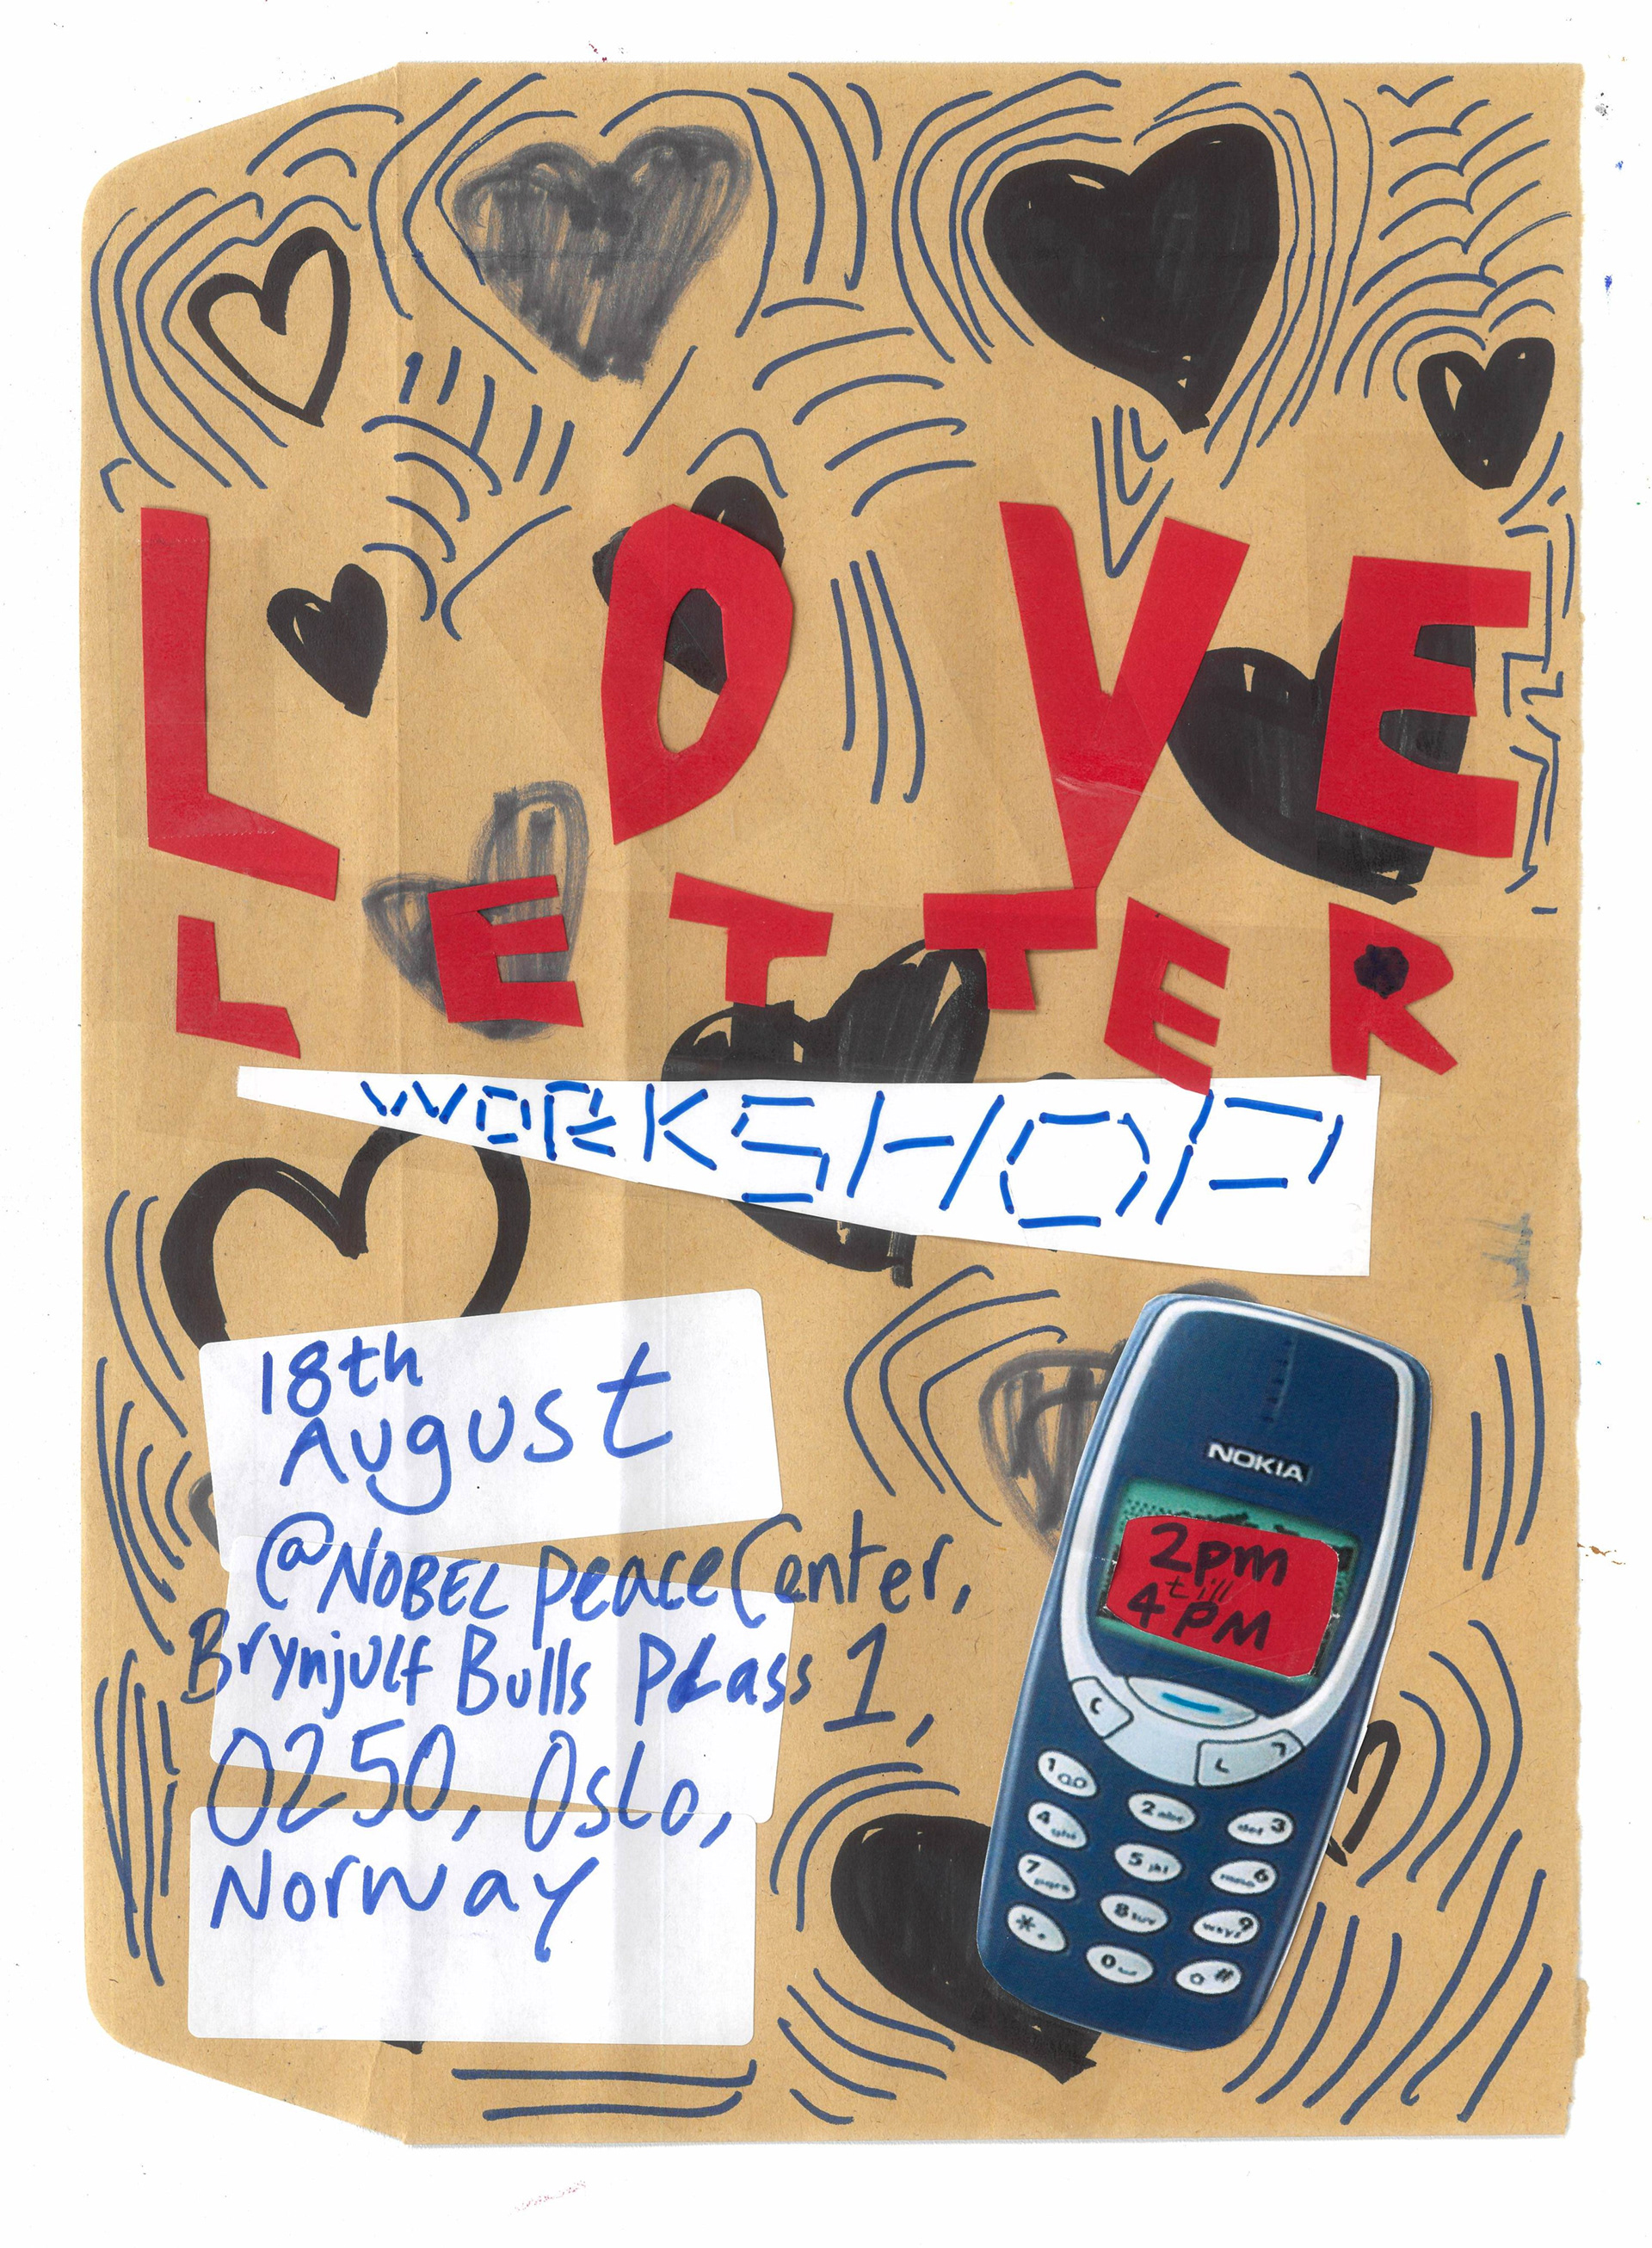 LOVE
LETTER
WORKSHOP
18th
August
@NOBEL peace Center,
Brynjulf Bulls Plass 1,
0250, Oslo,
Norway
NOKIA
2pm
till
4PM
C
1
2abc
def 3
4ghi
5jkl
mno6
7pqrs
8tuv
wxyz9
*+
0
#